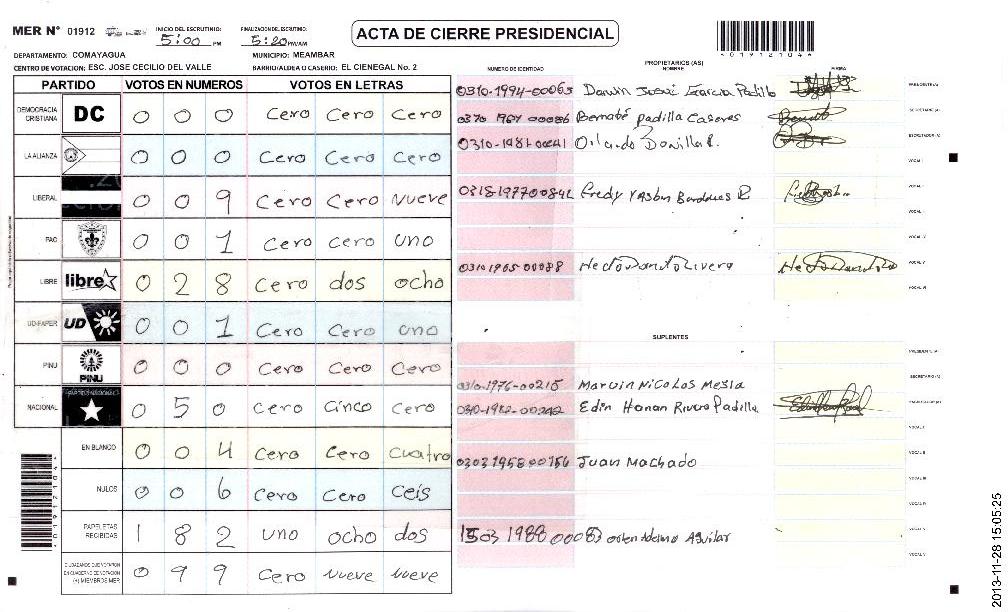 MER N° 01912
INICIO DEL ESCRUTINIO: 5:00 PM
FINALIZACION DEL ESCRUTINIO: 5:20 PM/AM
ACTA DE CIERRE PRESIDENCIAL
DEPARTAMENTO: COMAYAGUA
MUNICIPIO: MEAMBAR
CENTRO DE VOTACION: ESC. JOSE CECILIO DEL VALLE
BARRIO/ALDEA O CASERIO: EL CIENEGAL No. 2
PARTIDO VOTOS EN NUMEROS VOTOS EN LETRAS
DEMOCRACIA CRISTIANA DC 0 0 0 Cero Cero Cero
LA ALIANZA 0 0 0 Cero Cero Cero
LIBERAL 0 0 9 Cero Cero nueve
PAC 0 0 1 Cero cero uno
LIBRE libre 0 2 8 Cero dos ocho
UD-FAPER UD 0 0 1 Cero Cero uno
PINU PINU 0 0 0 Cero Cero Cero
NACIONAL 0 5 0 Cero Cinco Cero
EN BLANCO 0 0 4 Cero Cero cuatro
NULOS 0 0 6 Cero Cero ceis
PAPELETAS RECIBIDAS 1 8 2 uno ocho dos
CIUDADANOS QUE VOTARON
EN CUADERNO DE VOTACION
(+) MIEMBROS MER 0 9 9 Cero nueve nueve
NUMERO DE IDENTIDAD
PROPIETARIOS (AS)
NOMBRE
FIRMA
0310-1994-00065 Darwin Josué Garcia Padilla
PRESIDENTE (A)
Bernabé padilla Casores
SECRETARIO (A)
0310-1981-00241 Orlando Bonilla R.
ESCRUTADOR (A)
VOCAL I
Fredy
0310 1965 00088 Hector Danilo Rivera
VOCAL V
SUPLENTES
PRESIDENTE (A)
SECRETARIO (A)
0310-1976-00215 Marvin Nicolas Mesia
0310-1982-00242 Edin Honan Rivera Padilla
ESCRUTADOR (A)
0303 1958 00156 Juan Machado
1503 1988 Aguilar
2013-11-28 15:05:25